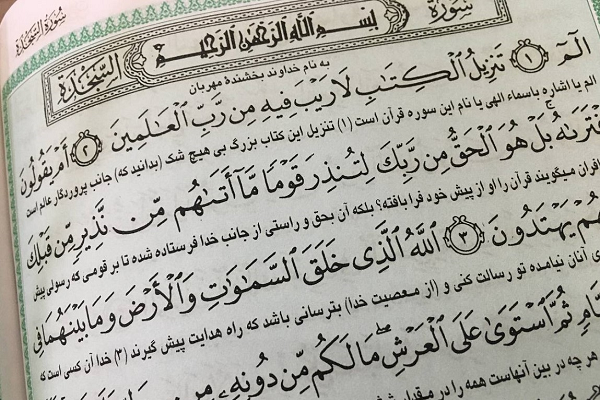 سُورَةُ السَّجْدَة
سُورَة
بِسْمِ اللَّهِ الرَّحْمَٰنِ الرَّحِيمِ
السَّجْدَة
به نام خداوند بخشندهٔ مهربان
الٓمٓ ﴿١﴾ تَنزِيلُ ٱلْكِتَٰبِ لَا رَيْبَ فِيهِ مِن رَّبِّ ٱلْعَٰلَمِينَ ﴿٢﴾ أَمْ يَقُولُونَ
الم یا اشاره باسماء الهی یا نام این سوره قرآن است (۱) تنزیل این کتاب بزرگ بی هیچ شک (بدانید که) جانب پروردگار عالم است
فْتَرَىٰهُ بَلْ هُوَ ٱلْحَقُّ مِن رَّبِّكَ لِتُنذِرَ قَوْمًا مَّآ أَتَىٰهُم مِّن نَّذِيرٍ مِّن قَبْلِكَ
افران میگویند قرآن را او از پیش خود فرا بافته؟ بلکه آن بحق و راستی از جانب خدا فرستاده شده تا بر قومی که رسولی پیش
هُمْ يَهْتَدُونَ ﴿٣﴾ ٱللَّهُ ٱلَّذِى خَلَقَ ٱلسَّمَٰوَٰتِ وَٱلْأَرْضَ وَمَا بَيْنَهُمَا فِى
ی آنان نیامده تو رسالت کنی و (از معصیت خدا) بترسانی باشد که راه هدایت پیش گیرند (۳) خدا آن کسی است که
امٍ ثُمَّ ٱسْتَوَىٰ عَلَى ٱلْعَرْشِ مَا لَكُم مِّن دُونِهِۦ مِن
هر چه در بین آنهاست همه را در مقدار شش